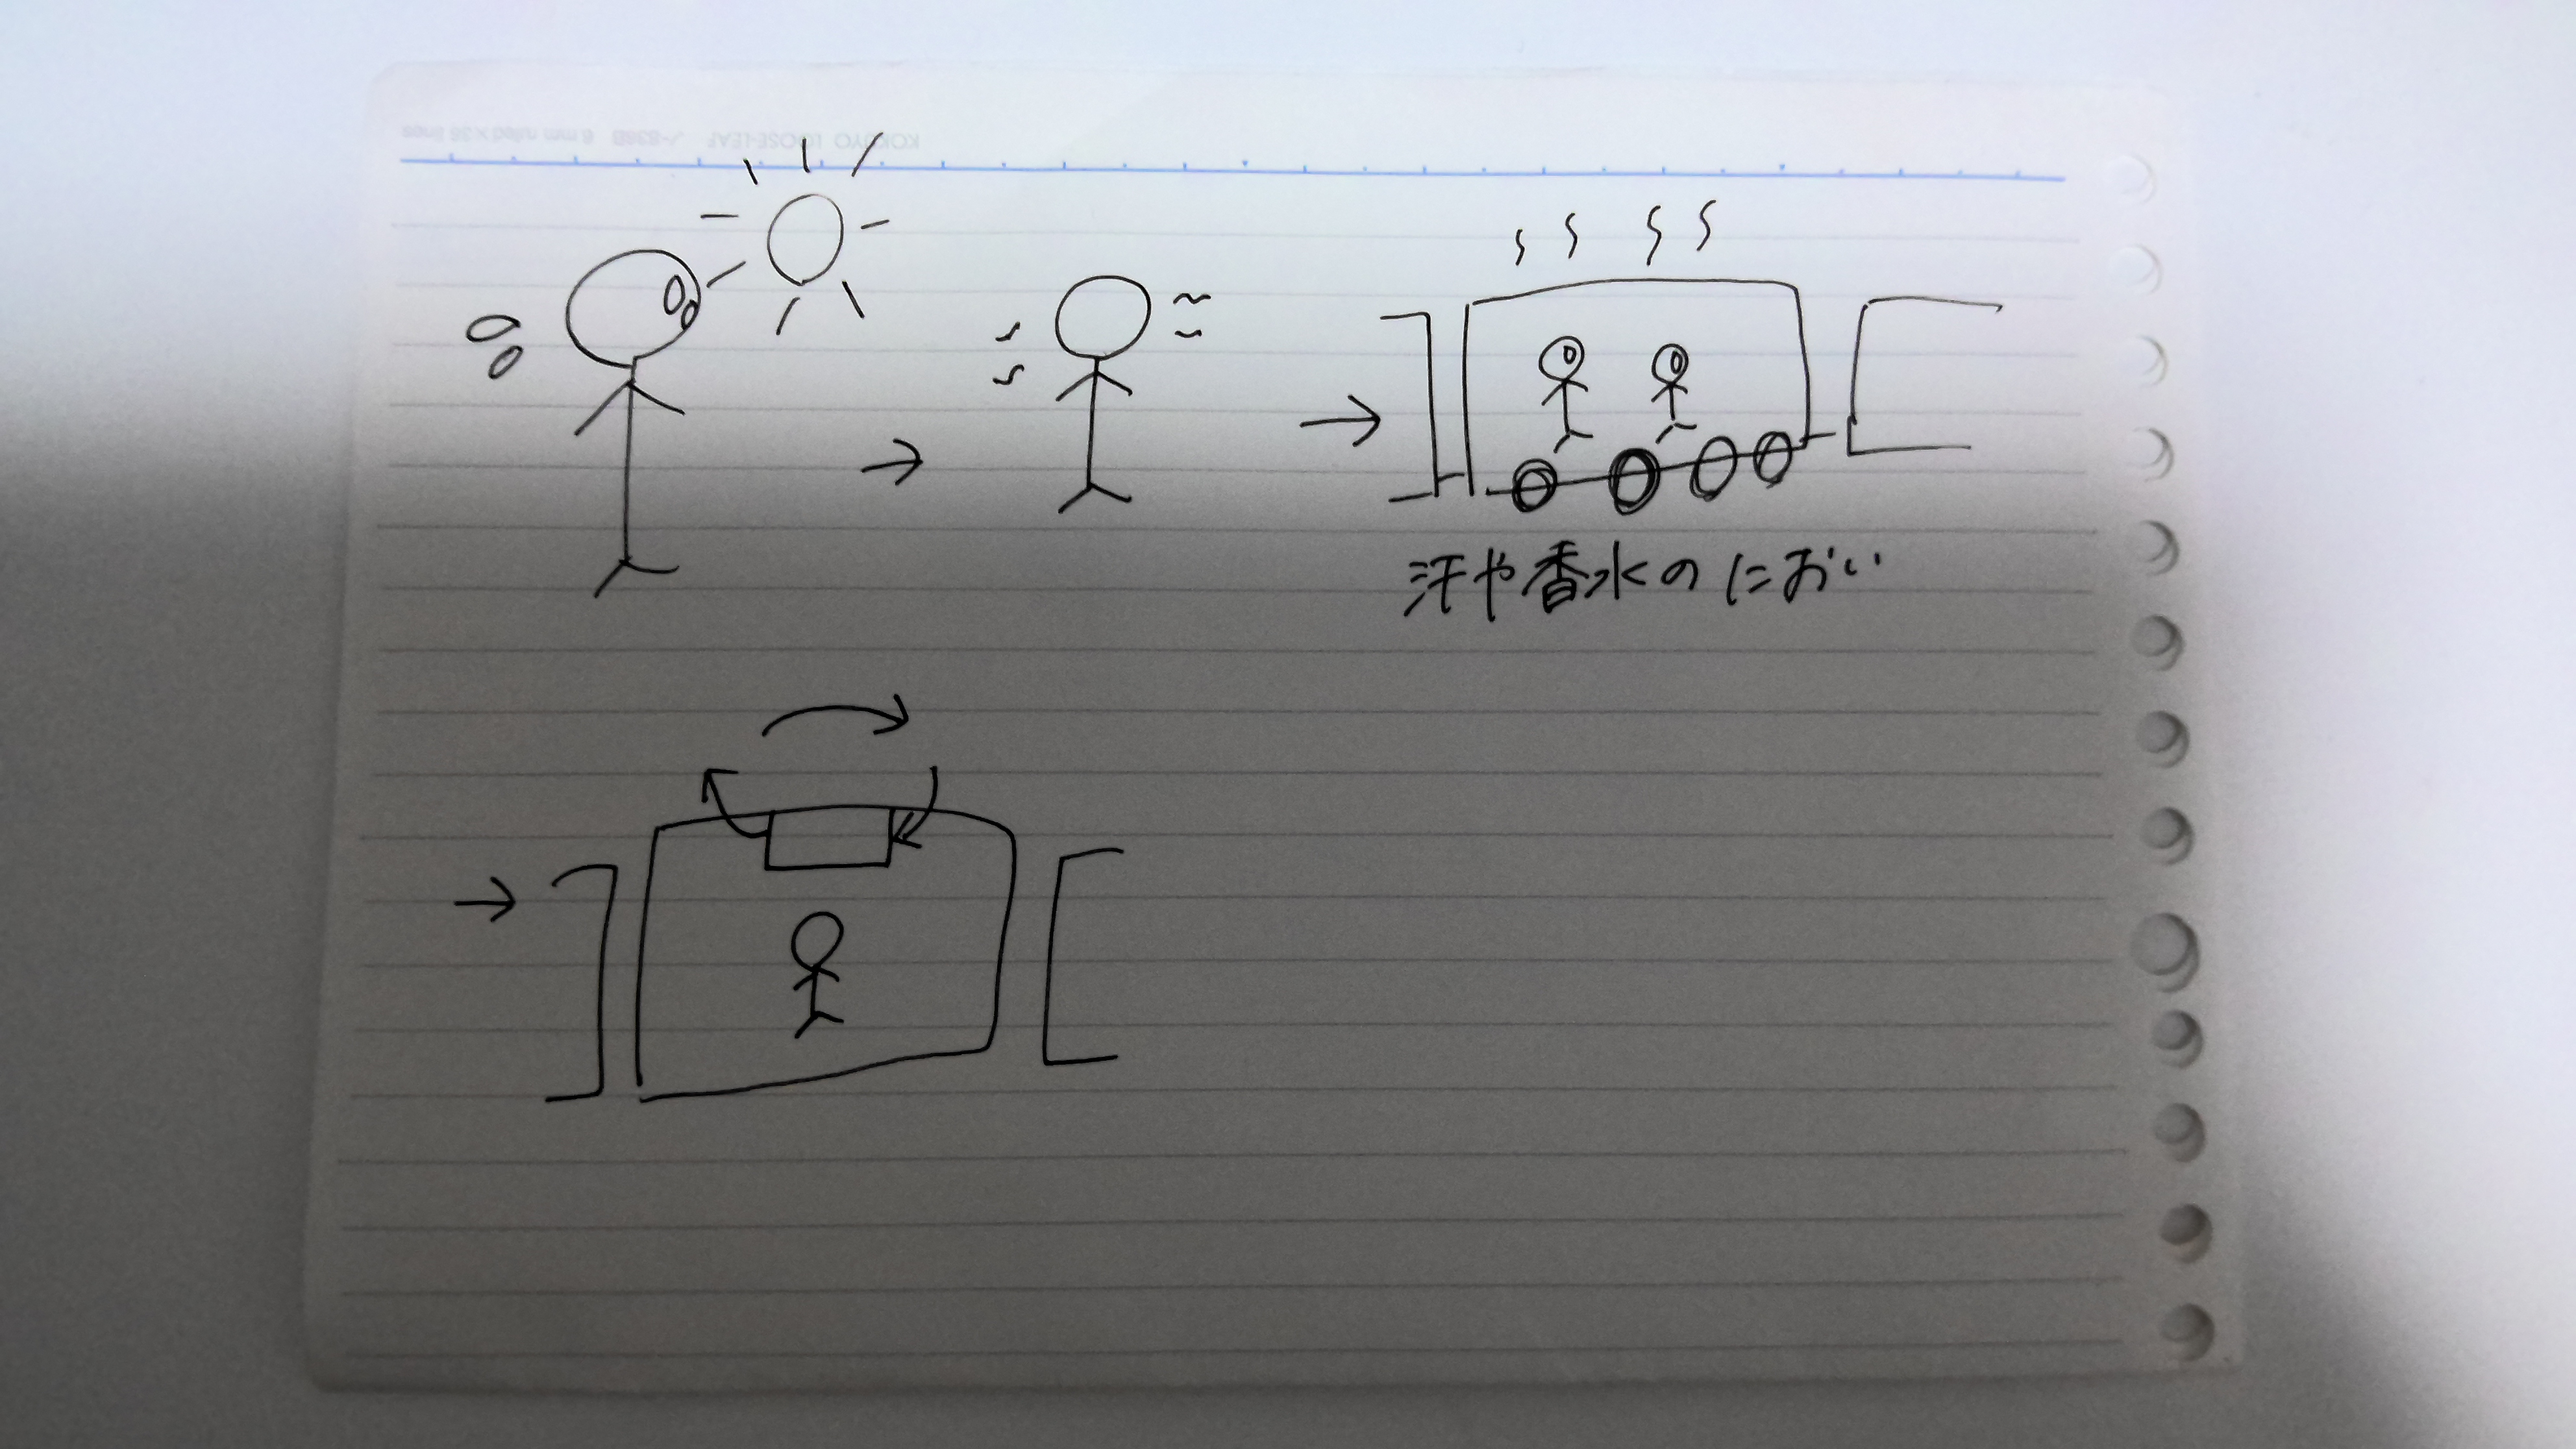 KOKUYO LOOSE-LEAF ノ-836B 6 mm ruled×36 lines
汗や香水のにおい